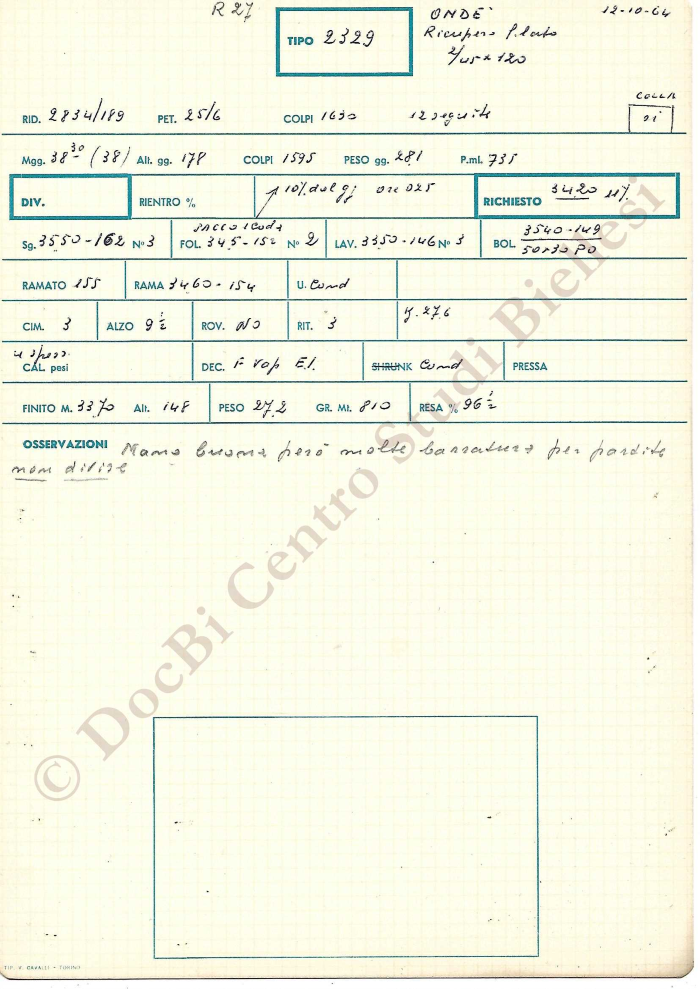 R 27
12-10-64
TIPO 2329
ONDE'
Ricupero filato
2/45 x 120
COLLA
RID. 2834/189 PET. 25/6 COLPI 1630 12 seguite si
Mgg. 38 30 (38) Alt. gg. 178 COLPI 1595 PESO gg. 281 P.ml. 735
DIV. RIENTRO % 10% dal gg ore 025 RICHIESTO 3420 11%
SACCO 1 Coda
Sg. 3550-162 N° 3 FOL. 345-152 N° 2 LAV. 3350-146 N° 3 BOL. 3540-149
50+30 PO
RAMATO 155 RAMA 3460-154 U. Cond
CIM. 3 ALZO 9 1/2 ROV. NO RIT. 3 K. 27.6
CAL. pesi DEC. F Vap E.l. SHRUNK Cond PRESSA
FINITO M. 3370 Alt. 148 PESO 27,2 GR. Mt. 810 RESA % 96 1/2
OSSERVAZIONI Mano buona però molte barrature per partite
non divise
© DocBi Centro Studi Biellesi
TIP. V. CAVALLI - TORINO